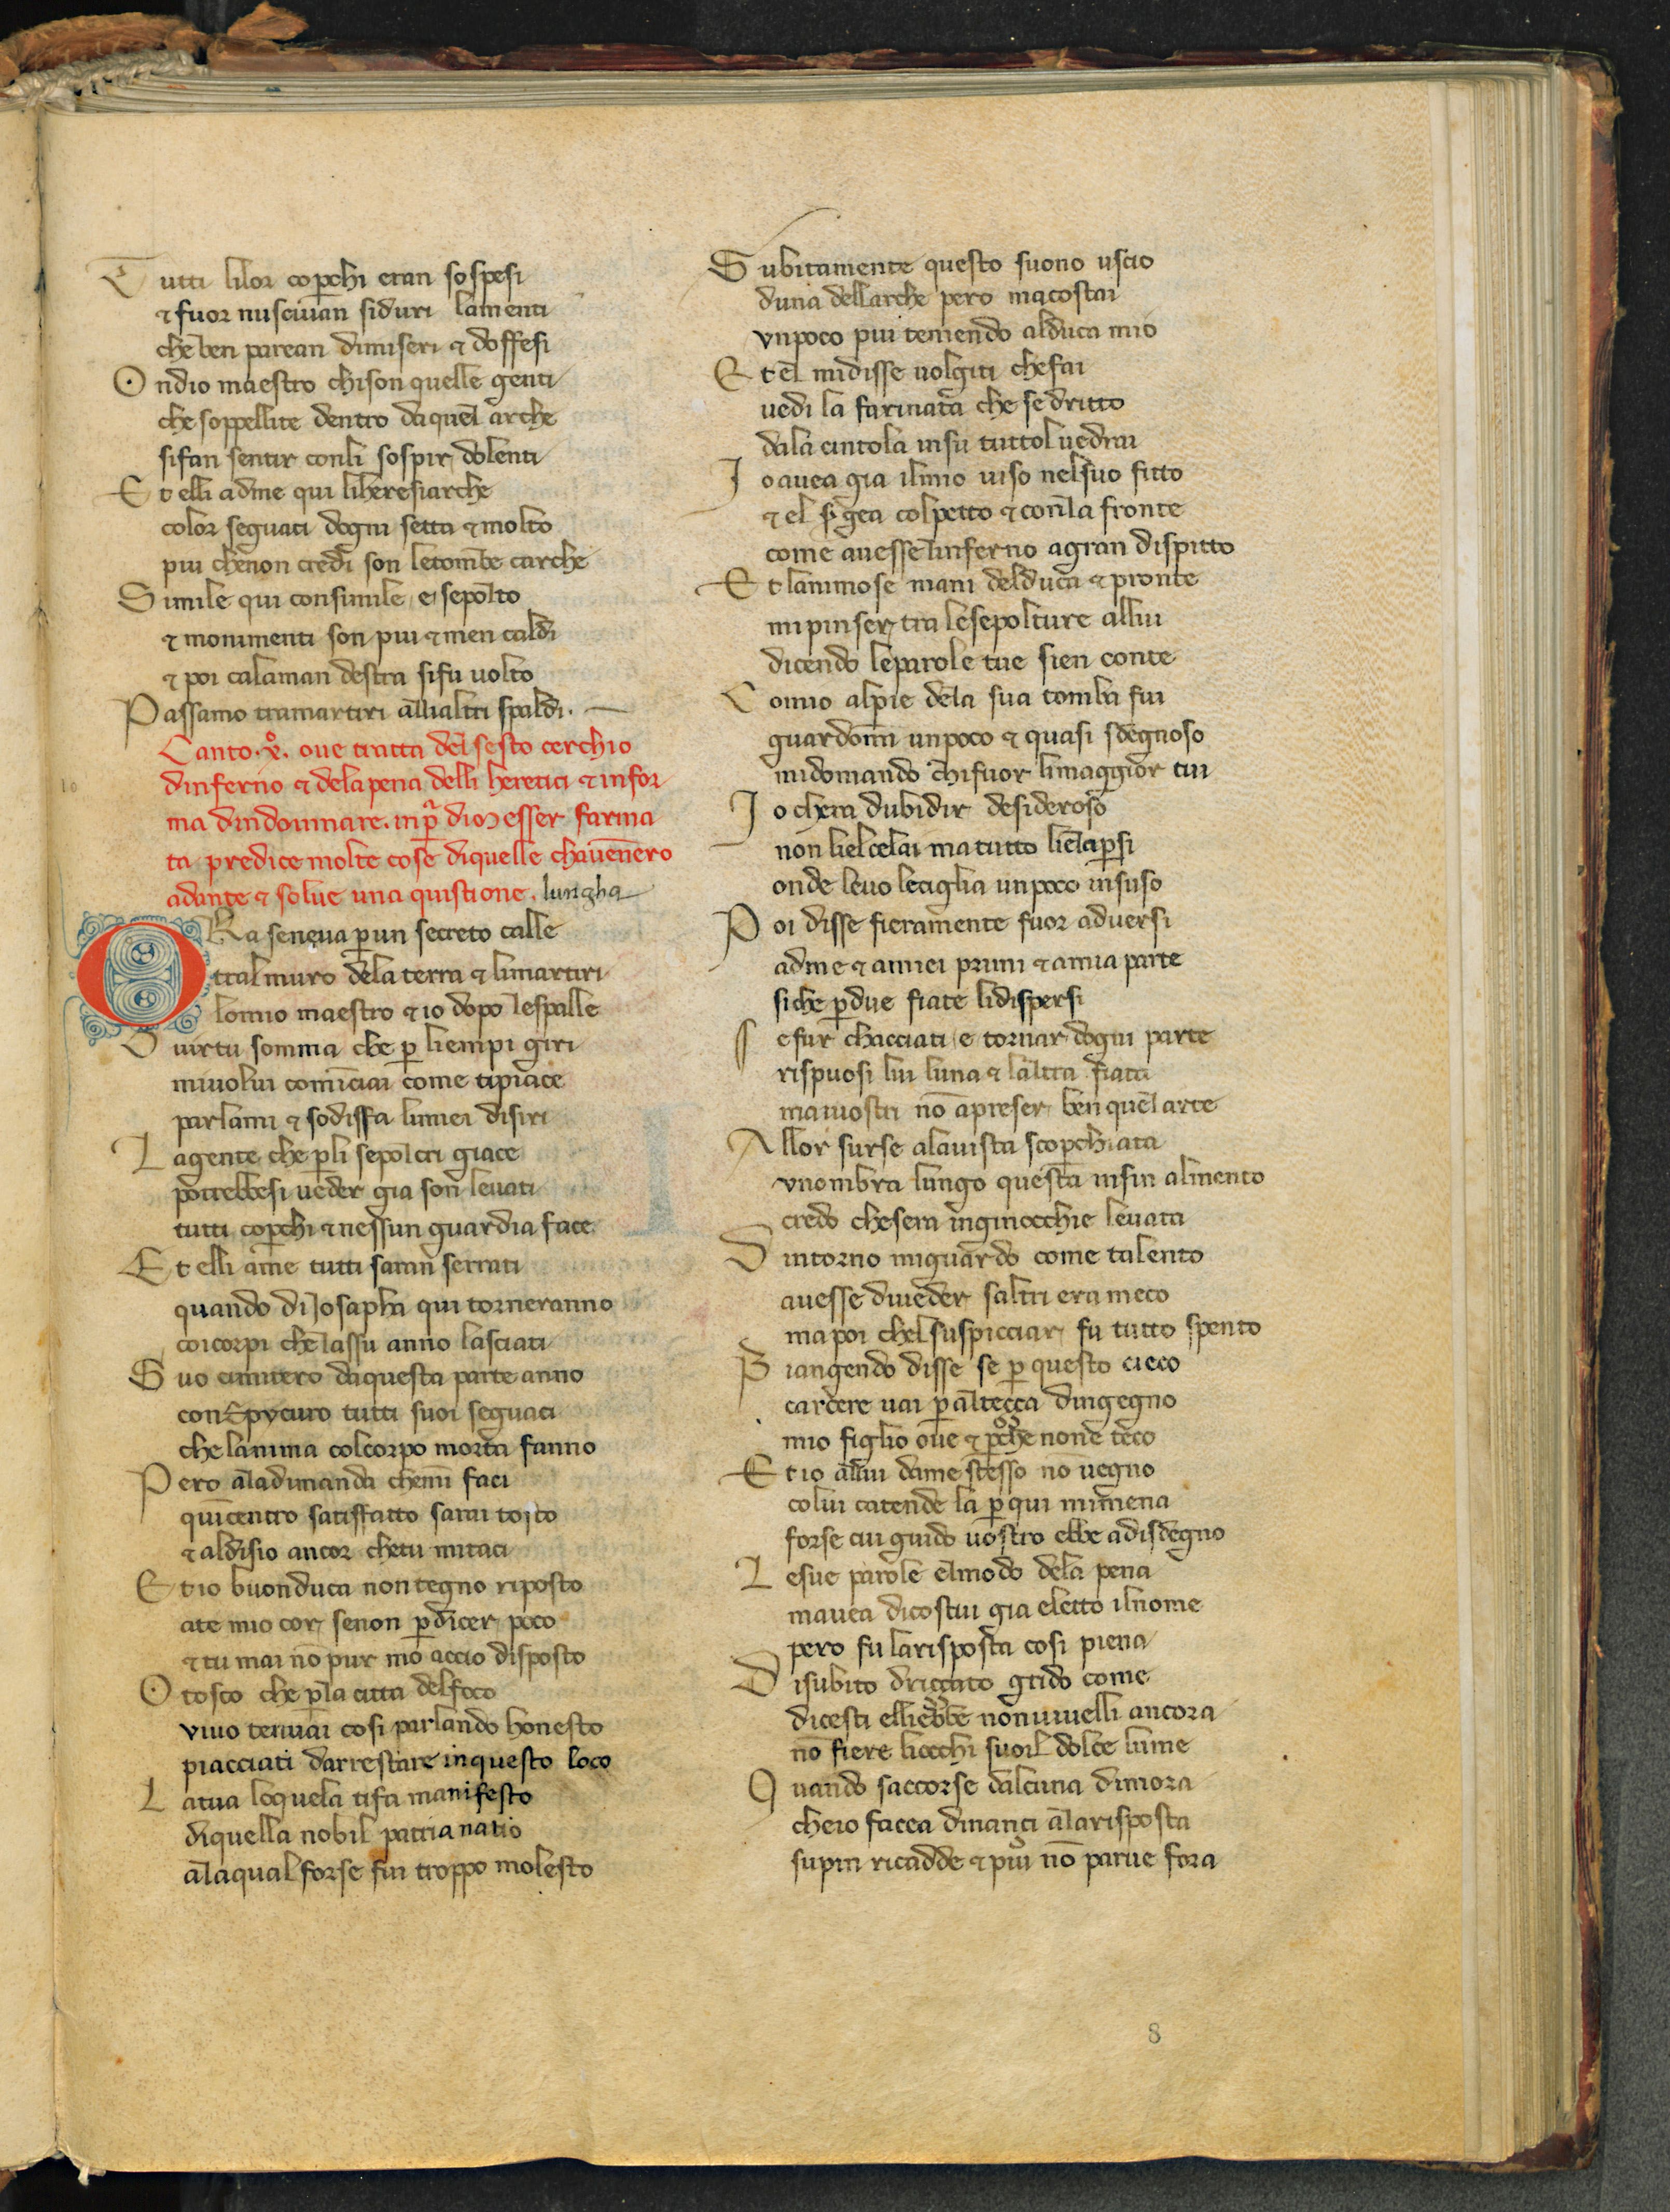 Tutti lilor copchi eran sospesi
& fuor nusciuan siduri lamenti
che ben parean dimiseri & doffesi
Ondio maestro chison quelle genti
che soppellite dentro daquel arche
sifan sentir conli sospir dolenti
Et elli adme qui liheresiarche
color seguaci dogni setta & molto
piu chenon credi son letombe carche
Simile qui consimile e sepolto
& monimenti son piu & men caldi
& poi calaman destra sifu uolto
Passamo tramartiri alliàltri spaldi.
Canto .x. oue tratta del sesto cerchio
dinferno & delapena delli heretici & infor
ma dindouinare. inpª dio messer farina
ta predice molte cose diquelle chauenero
adante & solue una quistione. lungha
10
ORa seneua p un secreto calle
tral muro dela terra & limartiri
lomio maestro & io dopo lespalle
O uirtu somma che p liempi giri
miuolui cominciai come tipiace
parlami & sodisfa limiei disiri
La gente che pli sepolcri giace
potrebbesi ueder gia son leuati
tutti copchi & nessun guardia face
Et elli ame tutti saran serrati
quando di Josapha qui torneranno
coicorpi che lassu anno lasciati
Suo cimitero daquesta parte anno
conEpycuro tutti suoi seguaci
che lanima colcorpo morta fanno
Pero aladimanda chemi faci
quicentro satisfatto sarai tosto
& aldisio ancor chetu mitaci
Et io buon duca non tegno riposto
ate mio cor senon pdicer poco
& tu mai nō pur mo accio disposto
O tosco che pla citta delfoco
viuo tenuai cosi parlando honesto
piacciati darrestare inquesto loco
Latua loquela tifa manifesto
diquella nobil patria natio
alaqual forse fui troppo molesto
Subitamente questo suono uscio
duna dellarche pero macostai
vnpoco piu temendo alduca mio
Et el midisse uolgiti chefai
uedi la farinata che se dritto
dala cintola insu tuttol uedrai
Io auea gia ilmio uiso nelsuo fitto
& el sgea colpetto & conla fronte
come auesse linferno agran dispitto
Et lanimose mani delduca & pronte
mipinser tra lesepolture allui
dicendo leparole tue sien conte
Comio alpie dela sua tomba fui
guardomi unpoco & quasi sdegnoso
midomando chifuor limaggior tui
Io chera dubidir desideroso
non lielcelai ma tutto lielapsi
onde leuo leciglia unpoco insuso
Poi disse fieramente fuor aduersi
adme & amiei primi & amia parte
siche pdue fiate lidispersi
Sefur chacciati e tornar dogni parte
rispuosi lui luna & laltra fiata
maiuostri nō apreser ben quel arte
Allor surse alauista scopchiata
vnombra lungo questa infin almento
credo chesera inginocchie leuata
Dintorno miguardo come talento
auesse diueder saltri era meco
mapoi chel suspicciar fu tutto spento
Piangendo disse se p questo cieco
carcere uai p altecça dingegno
mio figlio oue & pche none teco
Et io allui dame stesso no uegno
colui catende la p qui mimena
forse cui guido uostro ebbe adisdegno
Lesue parole elmodo dela pena
mauea dicostui gia eletto ilnome
pero fu larisposta cosi piena
Disubito driççato grido come
dicesti elliebbe nonuiuelli ancora
nō fiere liocchi suoil dolce lume
Quando saccorse dalcuna dimora
cheio facea dinanci alarisposta
supin ricadde & piu nō parue fora
8